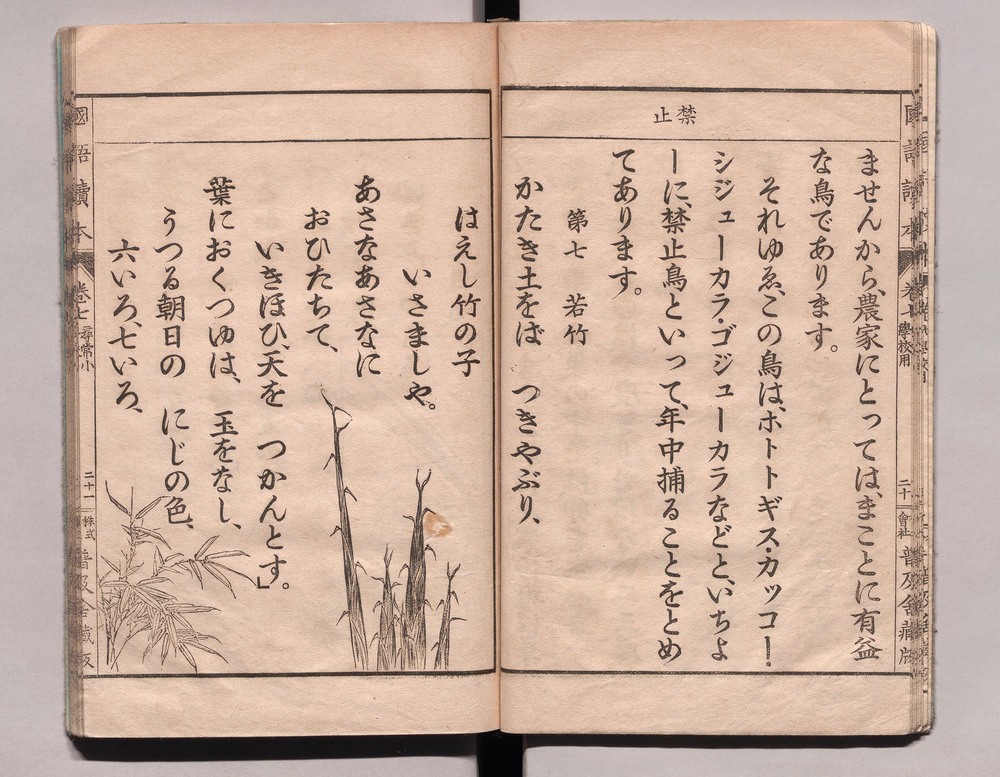 禁止
ませんから、農家にとっては、まことに有益
な鳥であります。
それゆゑ、この鳥は、ホトトギス・カッコー・
シジューカラ・ゴジューカラなどと、いちよ
ーに、禁止鳥といって、年中捕ることをとめ
てあります。
第七 若竹
かたき土をば つきやぶり、
はえし竹の子
いさましや。
あさなあさなに
おひたちて、
いきほひ、天を つかんとす。」
葉におくつゆは、玉をなし、
うつる朝日の にじの色、
六いろ、七いろ、
國語讀本 卷七 尋常小 二十一 株式 普及舍藏版
國語讀本 卷七 學校用 二十 會社 普及舍藏版